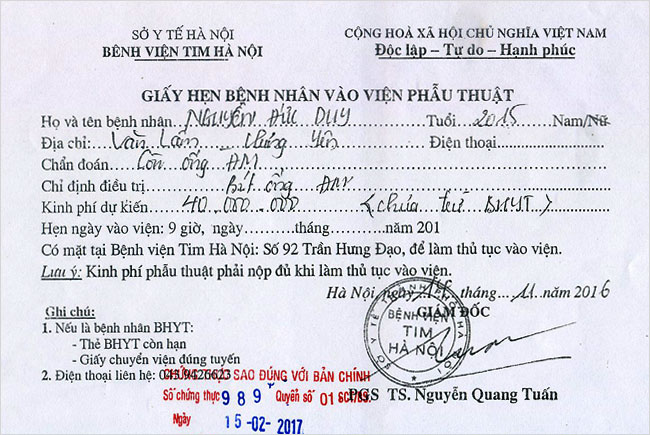 SỞ Y TẾ HÀ NỘI
BỆNH VIỆN TIM HÀ NỘI
CỘNG HOÀ XÃ HỘI CHỦ NGHĨA VIỆT NAM
Độc lập – Tự do – Hạnh phúc
GIẤY HẸN BỆNH NHÂN VÀO VIỆN PHẪU THUẬT
Họ và tên bệnh nhân NGUYỄN ĐỨC DUY Tuổi 2015 Nam/Nữ
Địa chỉ: Văn Lâm Hưng Yên Điện thoại
Chẩn đoán Còn ống ĐM
Chỉ định điều trị Bít ống ĐM
Kinh phí dự kiến 40.000.000 (chưa trừ BHYT)
Hẹn ngày vào viện: 9 giờ, ngày tháng năm 201
Có mặt tại Bệnh viện Tim Hà Nội: Số 92 Trần Hưng Đạo, để làm thủ tục vào viện.
Lưu ý: Kinh phí phẫu thuật phải nộp đủ khi làm thủ tục vào viện.
Hà Nội, ngày tháng 11 năm 2016
GIÁM ĐỐC
SỞ Y TẾ THÀNH PHỐ HÀ NỘI
BỆNH VIỆN
TIM
HÀ NỘI
Ghi chú:
1. Nếu là bệnh nhân BHYT:
- Thẻ BHYT còn hạn
- Giấy chuyển viện đúng tuyến
2. Điện thoại liên hệ:
CHỨNG THỰC SAO ĐÚNG VỚI BẢN CHÍNH
Số chứng thực 989 Quyển số 01 SCT/BS
Ngày 15-02-2017
PGS TS. Nguyễn Quang Tuấn